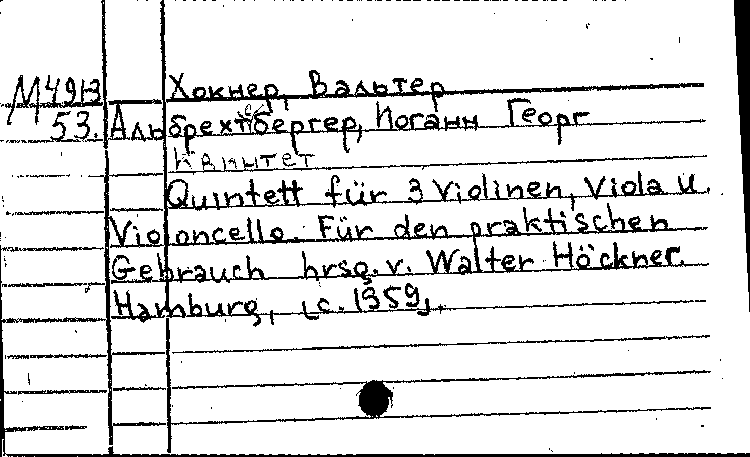 M4913 Хокнер, Вальтер
53. Альбрехтсбергер, Иоганн Георг
Квинтет
Quintett für 3 Violinen, Viola u.
Violoncello. Für den praktischen
Gebrauch hrsg. v. Walter Höckner.
Hamburg, [c. 1959].